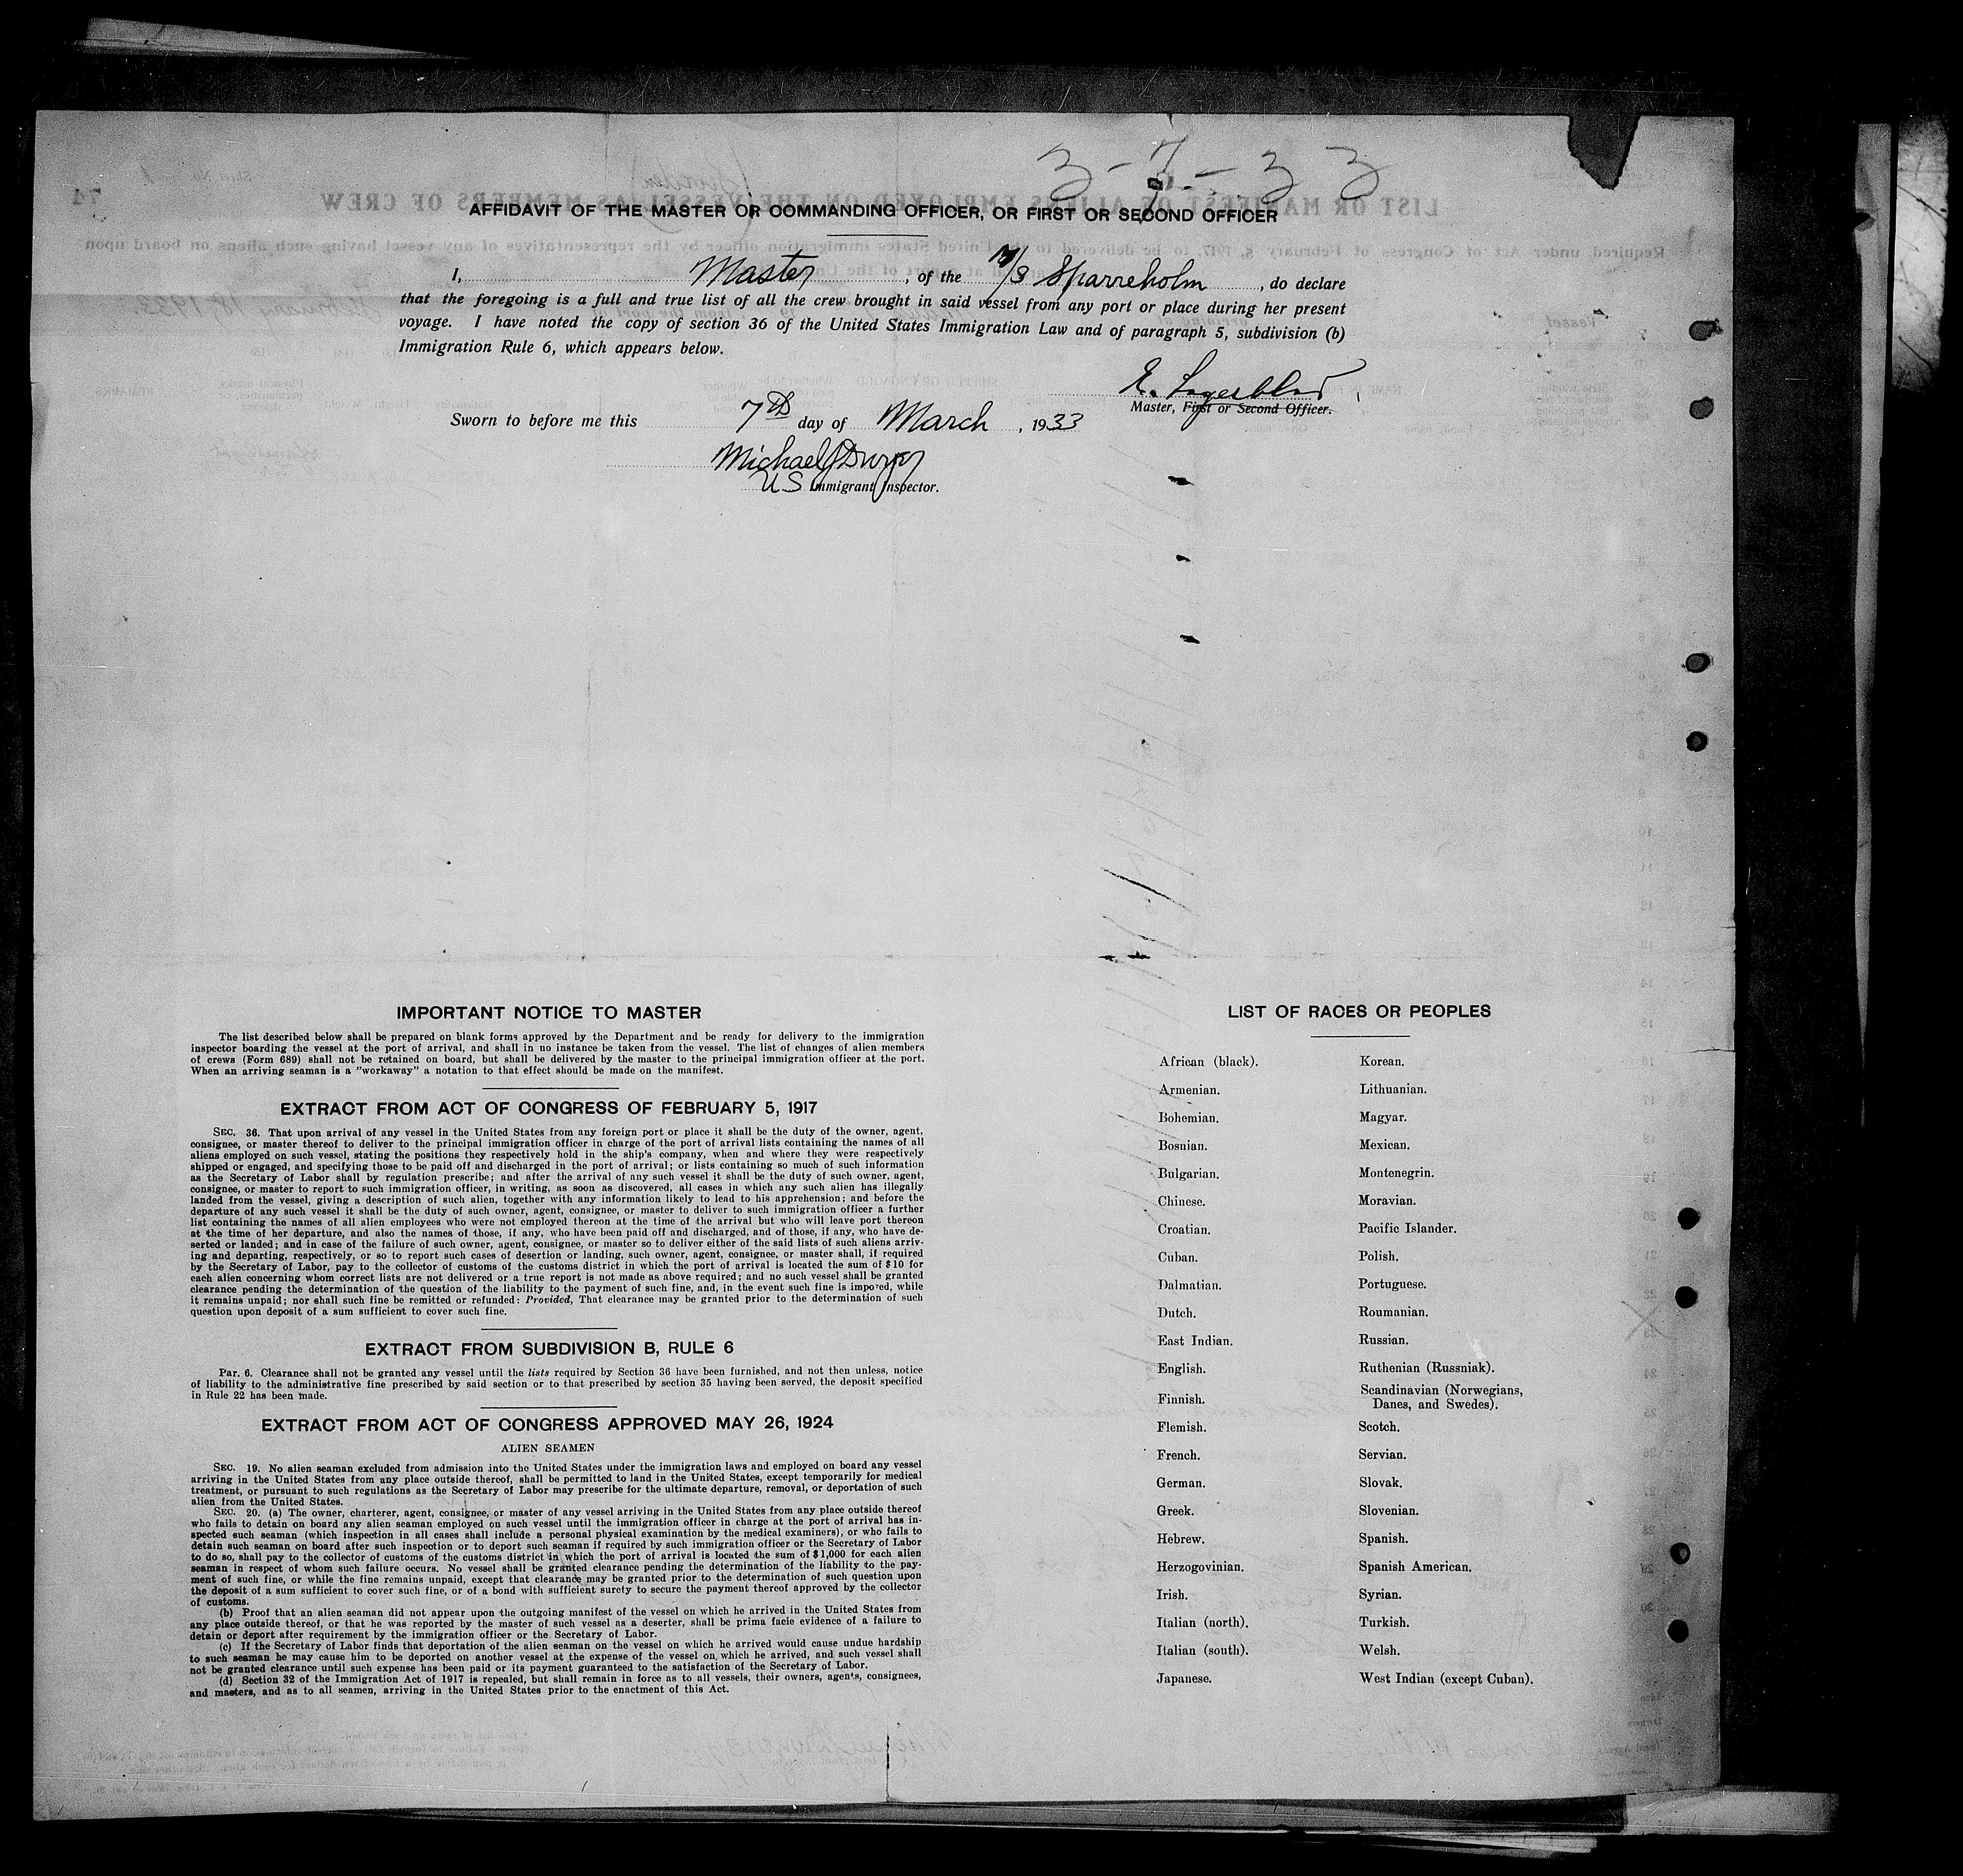 3-7-33
AFFIDAVIT OF THE MASTER OR COMMANDING OFFICER, OR FIRST OR SECOND OFFICER
I, Master, of the M/S Sparreholm, do declare
that the foregoing is a full and true list of all the crew brought in said vessel from any port or place during her present
voyage. I have noted the copy of section 36 of the United States Immigration Law and of paragraph 5, subdivision (b)
Immigration Rule 6, which appears below.
E. Lagerblad
Master, First or Second Officer.
Sworn to before me this 7th day of March, 1933
Michael J
US Immigrant Inspector.
IMPORTANT NOTICE TO MASTER
The list described below shall be prepared on blank forms approved by the Department and be ready for delivery to the immigration
inspector boarding the vessel at the port of arrival, and shall in no instance be taken from the vessel. The list of changes of alien members
of crews (Form 689) shall not be retained on board, but shall be delivered by the master to the principal immigration officer at the port.
When an arriving seaman is a "workaway" a notation to that effect should be made on the manifest.
EXTRACT FROM ACT OF CONGRESS OF FEBRUARY 5, 1917
SEC. 36. That upon arrival of any vessel in the United States from any foreign port or place it shall be the duty of the owner, agent,
consignee, or master thereof to deliver to the principal immigration officer in charge of the port of arrival lists containing the names of all
aliens employed on such vessel, stating the positions they respectively hold in the ship's company, when and where they were respectively
shipped or engaged, and specifying those to be paid off and discharged in the port of arrival; or lists containing so much of such information
as the Secretary of Labor shall by regulation prescribe; and after the arrival of any such vessel it shall be the duty of such owner, agent,
consignee, or master to report to such immigration officer, in writing, as soon as discovered, all cases in which any such alien has illegally
landed from the vessel, giving a description of such alien, together with any information likely to lead to his apprehension; and before the
departure of any such vessel it shall be the duty of such owner, agent, consignee, or master to deliver to such immigration officer a further
list containing the names of all alien employees who were not employed thereon at the time of the arrival but who will leave port thereon
at the time of her departure, and also the names of those, if any, who have been paid off and discharged, and of those, if any, who have de-
serted or landed; and in case of the failure of such owner, agent, consignee, or master so to deliver either of the said lists of such aliens arriv-
ing and departing, respectively, or so to report such cases of desertion or landing, such owner, agent, consignee, or master shall, if required
by the Secretary of Labor, pay to the collector of customs of the customs district in which the port of arrival is located the sum of $10 for
each alien concerning whom correct lists are not delivered or a true report is not made as above required; and no such vessel shall be granted
clearance pending the determination of the question of the liability to the payment of such fine, and, in the event such fine is imposed, while
it remains unpaid; nor shall such fine be remitted or refunded: Provided, That clearance may be granted prior to the determination of such
question upon deposit of a sum sufficient to cover such fine.
EXTRACT FROM SUBDIVISION B, RULE 6
PAR. 6. Clearance shall not be granted any vessel until the lists required by Section 36 have been furnished, and not then unless, notice
of liability to the administrative fine prescribed by said section or to that prescribed by section 35 having been served, the deposit specified
in Rule 22 has been made.
EXTRACT FROM ACT OF CONGRESS APPROVED MAY 26, 1924
ALIEN SEAMEN
SEC. 19. No alien seaman excluded from admission into the United States under the immigration laws and employed on board any vessel
arriving in the United States from any place outside thereof, shall be permitted to land in the United States, except temporarily for medical
treatment, or pursuant to such regulations as the Secretary of Labor may prescribe for the ultimate departure, removal, or deportation of such
alien from the United States.
SEC. 20. (a) The owner, charterer, agent, consignee, or master of any vessel arriving in the United States from any place outside thereof
who fails to detain on board any alien seaman employed on such vessel until the immigration officer in charge at the port of arrival has in-
spected such seaman (which inspection in all cases shall include a personal physical examination by the medical examiners), or who fails to
detain such seaman on board after such inspection or to deport such seaman if required by such immigration officer or the Secretary of Labor
to do so, shall pay to the collector of customs of the customs district in which the port of arrival is located the sum of $1,000 for each alien
seaman in respect of whom such failure occurs. No vessel shall be granted clearance pending the determination of the liability to the pay-
ment of such fine, or while the fine remains unpaid, except that clearance may be granted prior to the determination of such question upon
the deposit of a sum sufficient to cover such fine, or of a bond with sufficient surety to secure the payment thereof approved by the collector
of customs.
(b) Proof that an alien seaman did not appear upon the outgoing manifest of the vessel on which he arrived in the United States from
any place outside thereof, or that he was reported by the master of such vessel as a deserter, shall be prima facie evidence of a failure to
detain or deport after requirement by the immigration officer or the Secretary of Labor.
(c) If the Secretary of Labor finds that deportation of the alien seaman on the vessel on which he arrived would cause undue hardship
to such seaman he may cause him to be deported on another vessel at the expense of the vessel on which he arrived, and such vessel shall
not be granted clearance until such expense has been paid or its payment guaranteed to the satisfaction of the Secretary of Labor.
(d) Section 32 of the Immigration Act of 1917 is repealed, but shall remain in force as to all vessels, their owners, agents, consignees,
and masters, and as to all seamen, arriving in the United States prior to the enactment of this Act.
LIST OF RACES OR PEOPLES
African (black).
Armenian.
Bohemian.
Bosnian.
Bulgarian.
Chinese.
Croatian.
Cuban.
Dalmatian.
Dutch.
East Indian.
English.
Finnish.
Flemish.
French.
German.
Greek.
Hebrew.
Herzogovinian.
Irish.
Italian (north).
Italian (south).
Japanese.
Korean.
Lithuanian.
Magyar.
Mexican.
Montenegrin.
Moravian.
Pacific Islander.
Polish.
Portuguese.
Roumanian.
Russian.
Ruthenian (Russniak).
Scandinavian (Norwegians,
Danes, and Swedes).
Scotch.
Servian.
Slovak.
Slovenian.
Spanish.
Spanish American.
Syrian.
Turkish.
Welsh.
West Indian (except Cuban).